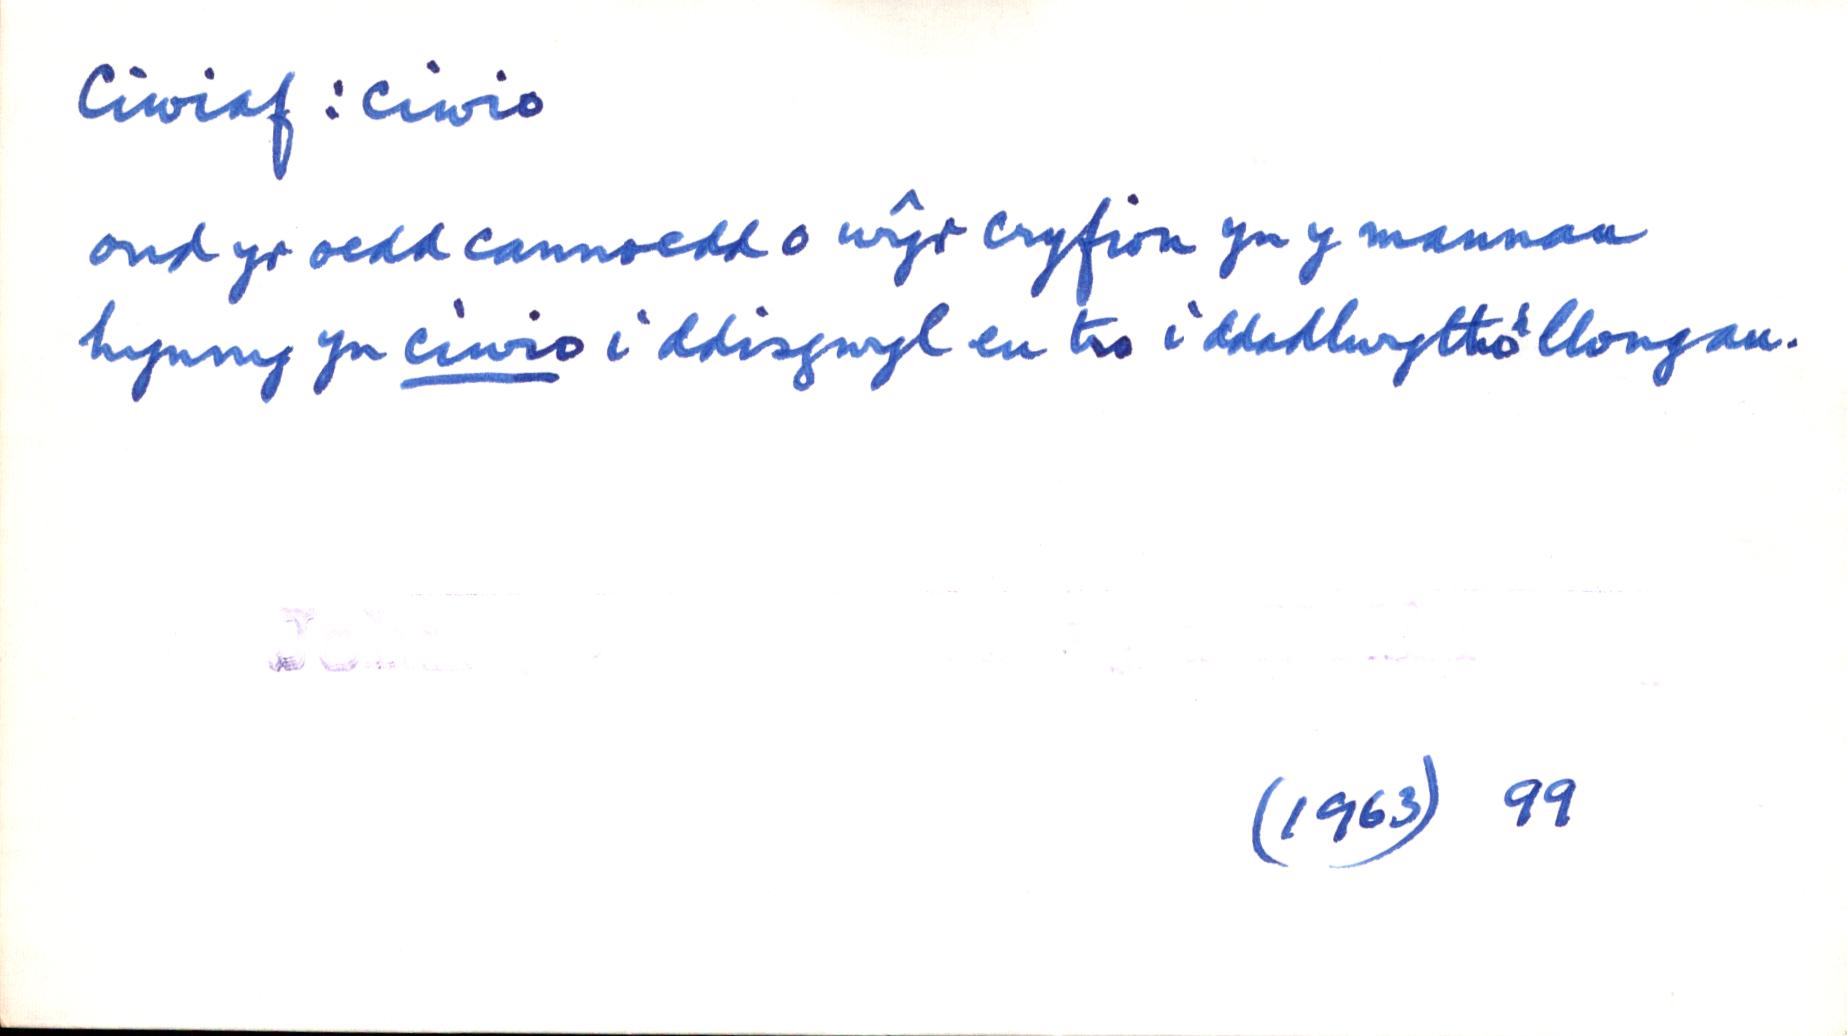 Ciwiaf : ciwio
ond yr oedd cannoedd o wŷr cryfion yn y mannau
hynny yn ciwio i ddisgwyl eu tro i ddadlwytho'r llongau.
(1963) 99